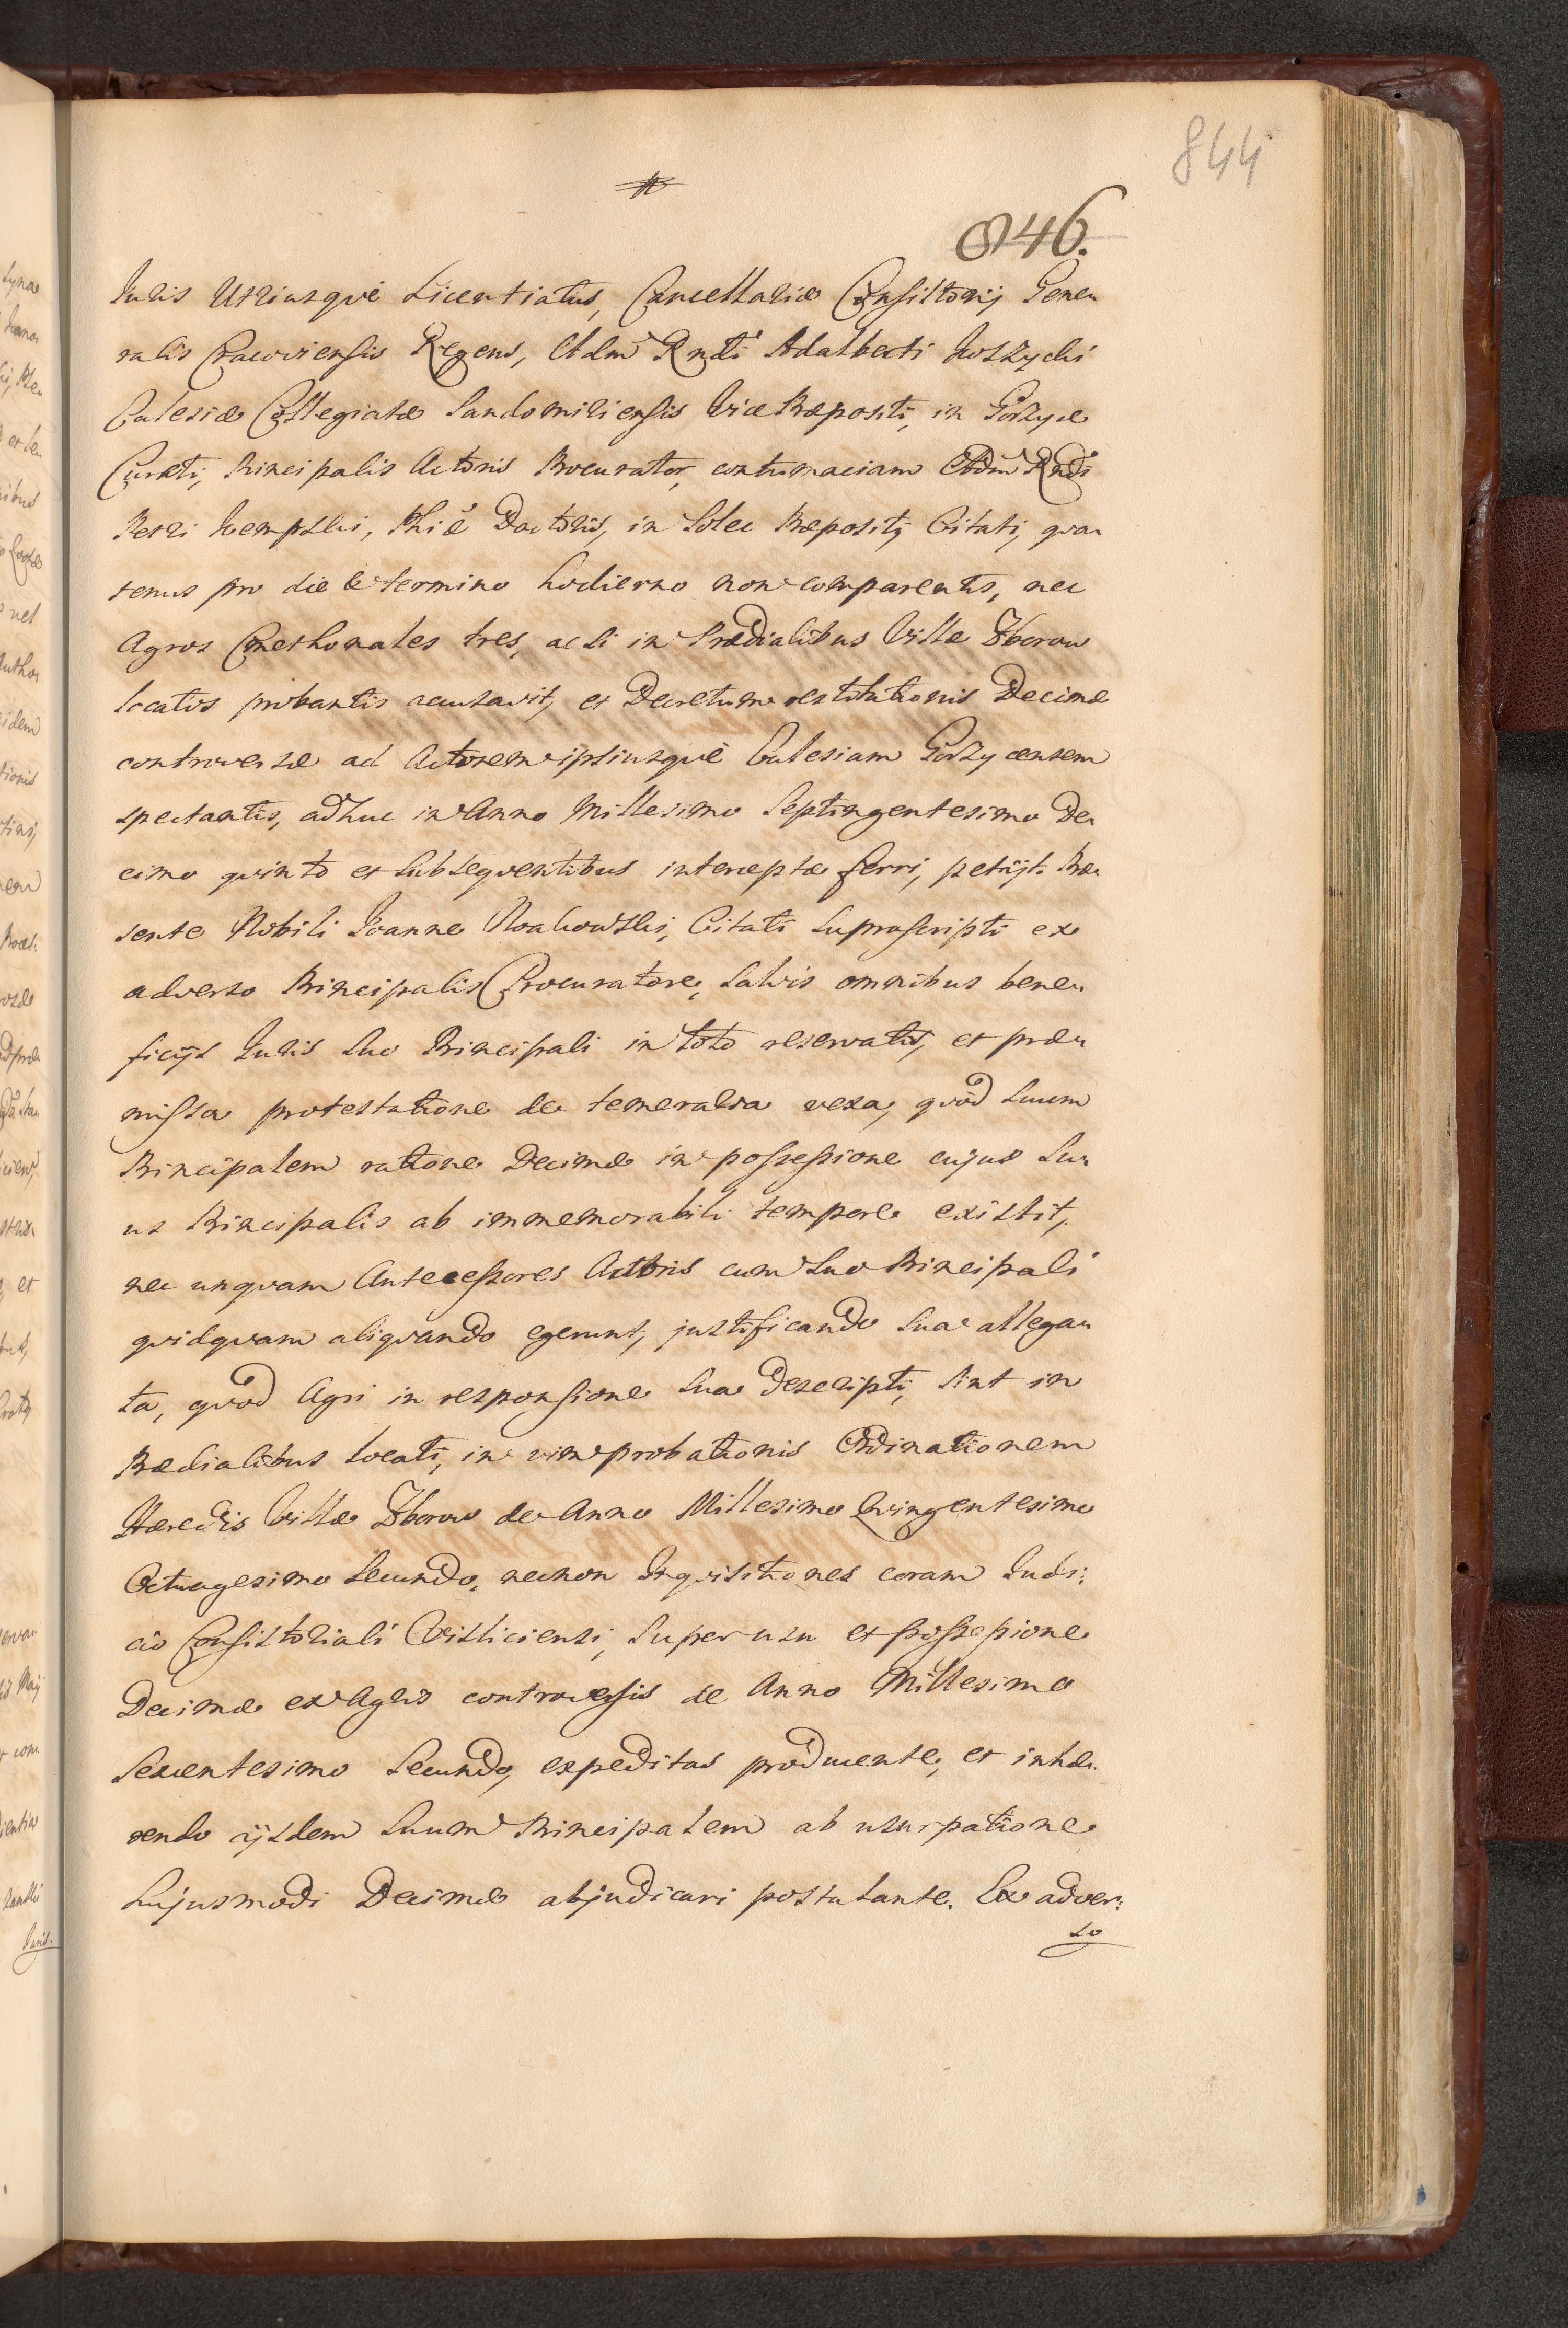 844
846.
Juris Utriusquè Licentiatus, Cancellariæ Consistorij Gene„
ralis Cracoviensis Regens, Adm Rndi Adalberti Koszycki
Ecclesiæ Collegiatæ Sandomiriensis Vice Præpositi, in Gorzyce
Curati, Principalis Actoris Procurator, contumaciam Adm Rndi
Petri Kempski, Phiæ Doctoris, in Solec Præpositi, Citati, qva„
tenus pro die & termino hodierno non comparentis, nec
Agros Cmethonales tres, ac si in Prædialibus Villæ Zborow
locatos probantis accusavit, et Decretum restitutionis Decimæ
controversæ ad Actorem ipsiusquè Ecclesiam Gorzycensem
spectantis, adhuc in Anno Millesimo Septingentesimo De„
cimo qvinto et subseqventibus interceptæ ferri, petijt. Præ„
sente Nobili Joanne Noakowski, Citati suprascripti ex
adverso Principalis Procuratore, salvis omnibus bene„
ficijs Juris suo Principali in toto reservatis, et præ„
missa protestatione de temeraria vexa, qvòd suum
Principalem ratione Decimæ in possessione cujus Su„
us Principalis ab immemorabili tempore existit,
nec unqvam Antecessores Actoris cum suo Principali
qvidqvam aliqvando egerunt, justificando sua allega„
ta, qvòd Agri in responsione sua descripti, sint in
Prædialibus locati, in vim probationis Ordinationem
Hæredis Villæ Zborow de Anno Millesimo Qvingentesimo
Octuagesimo Secundo, necnon Inqvisitiones coram Judi:
cio Consistoriali Visliciensi, super usu et possessione
Decimæ ex Agris controversis de Anno Millesimo
Sexcentesimo Secundo, expeditas producente, et inhæ„
rendo ijsdem suum Principalem ab usurpatione
hujusmodi Decimæ abjudicari postulante. Ex adver:
so